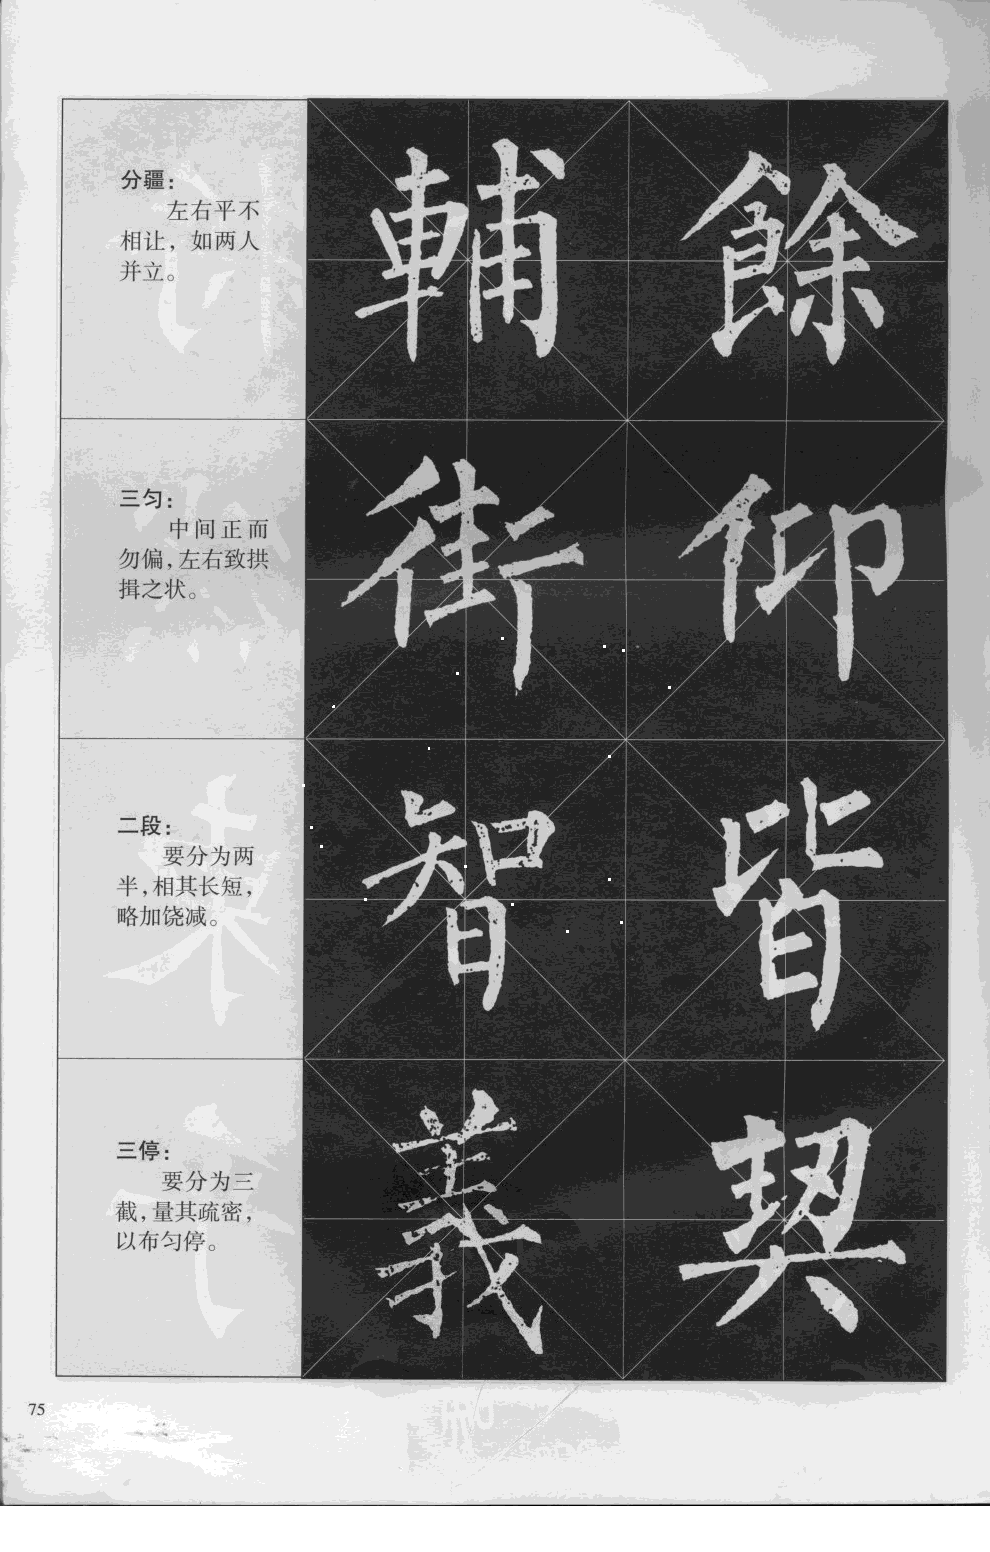 分疆：
左右平不
相让，如两人
并立。
輔餘
三匀：
中间正而
勿偏，左右致拱
揖之状。
街仰
二段：
要分为两
半，相其长短，
略加饶减。
智皆
三停：
要分为三
截，量其疏密，
以布匀停。
義契
75